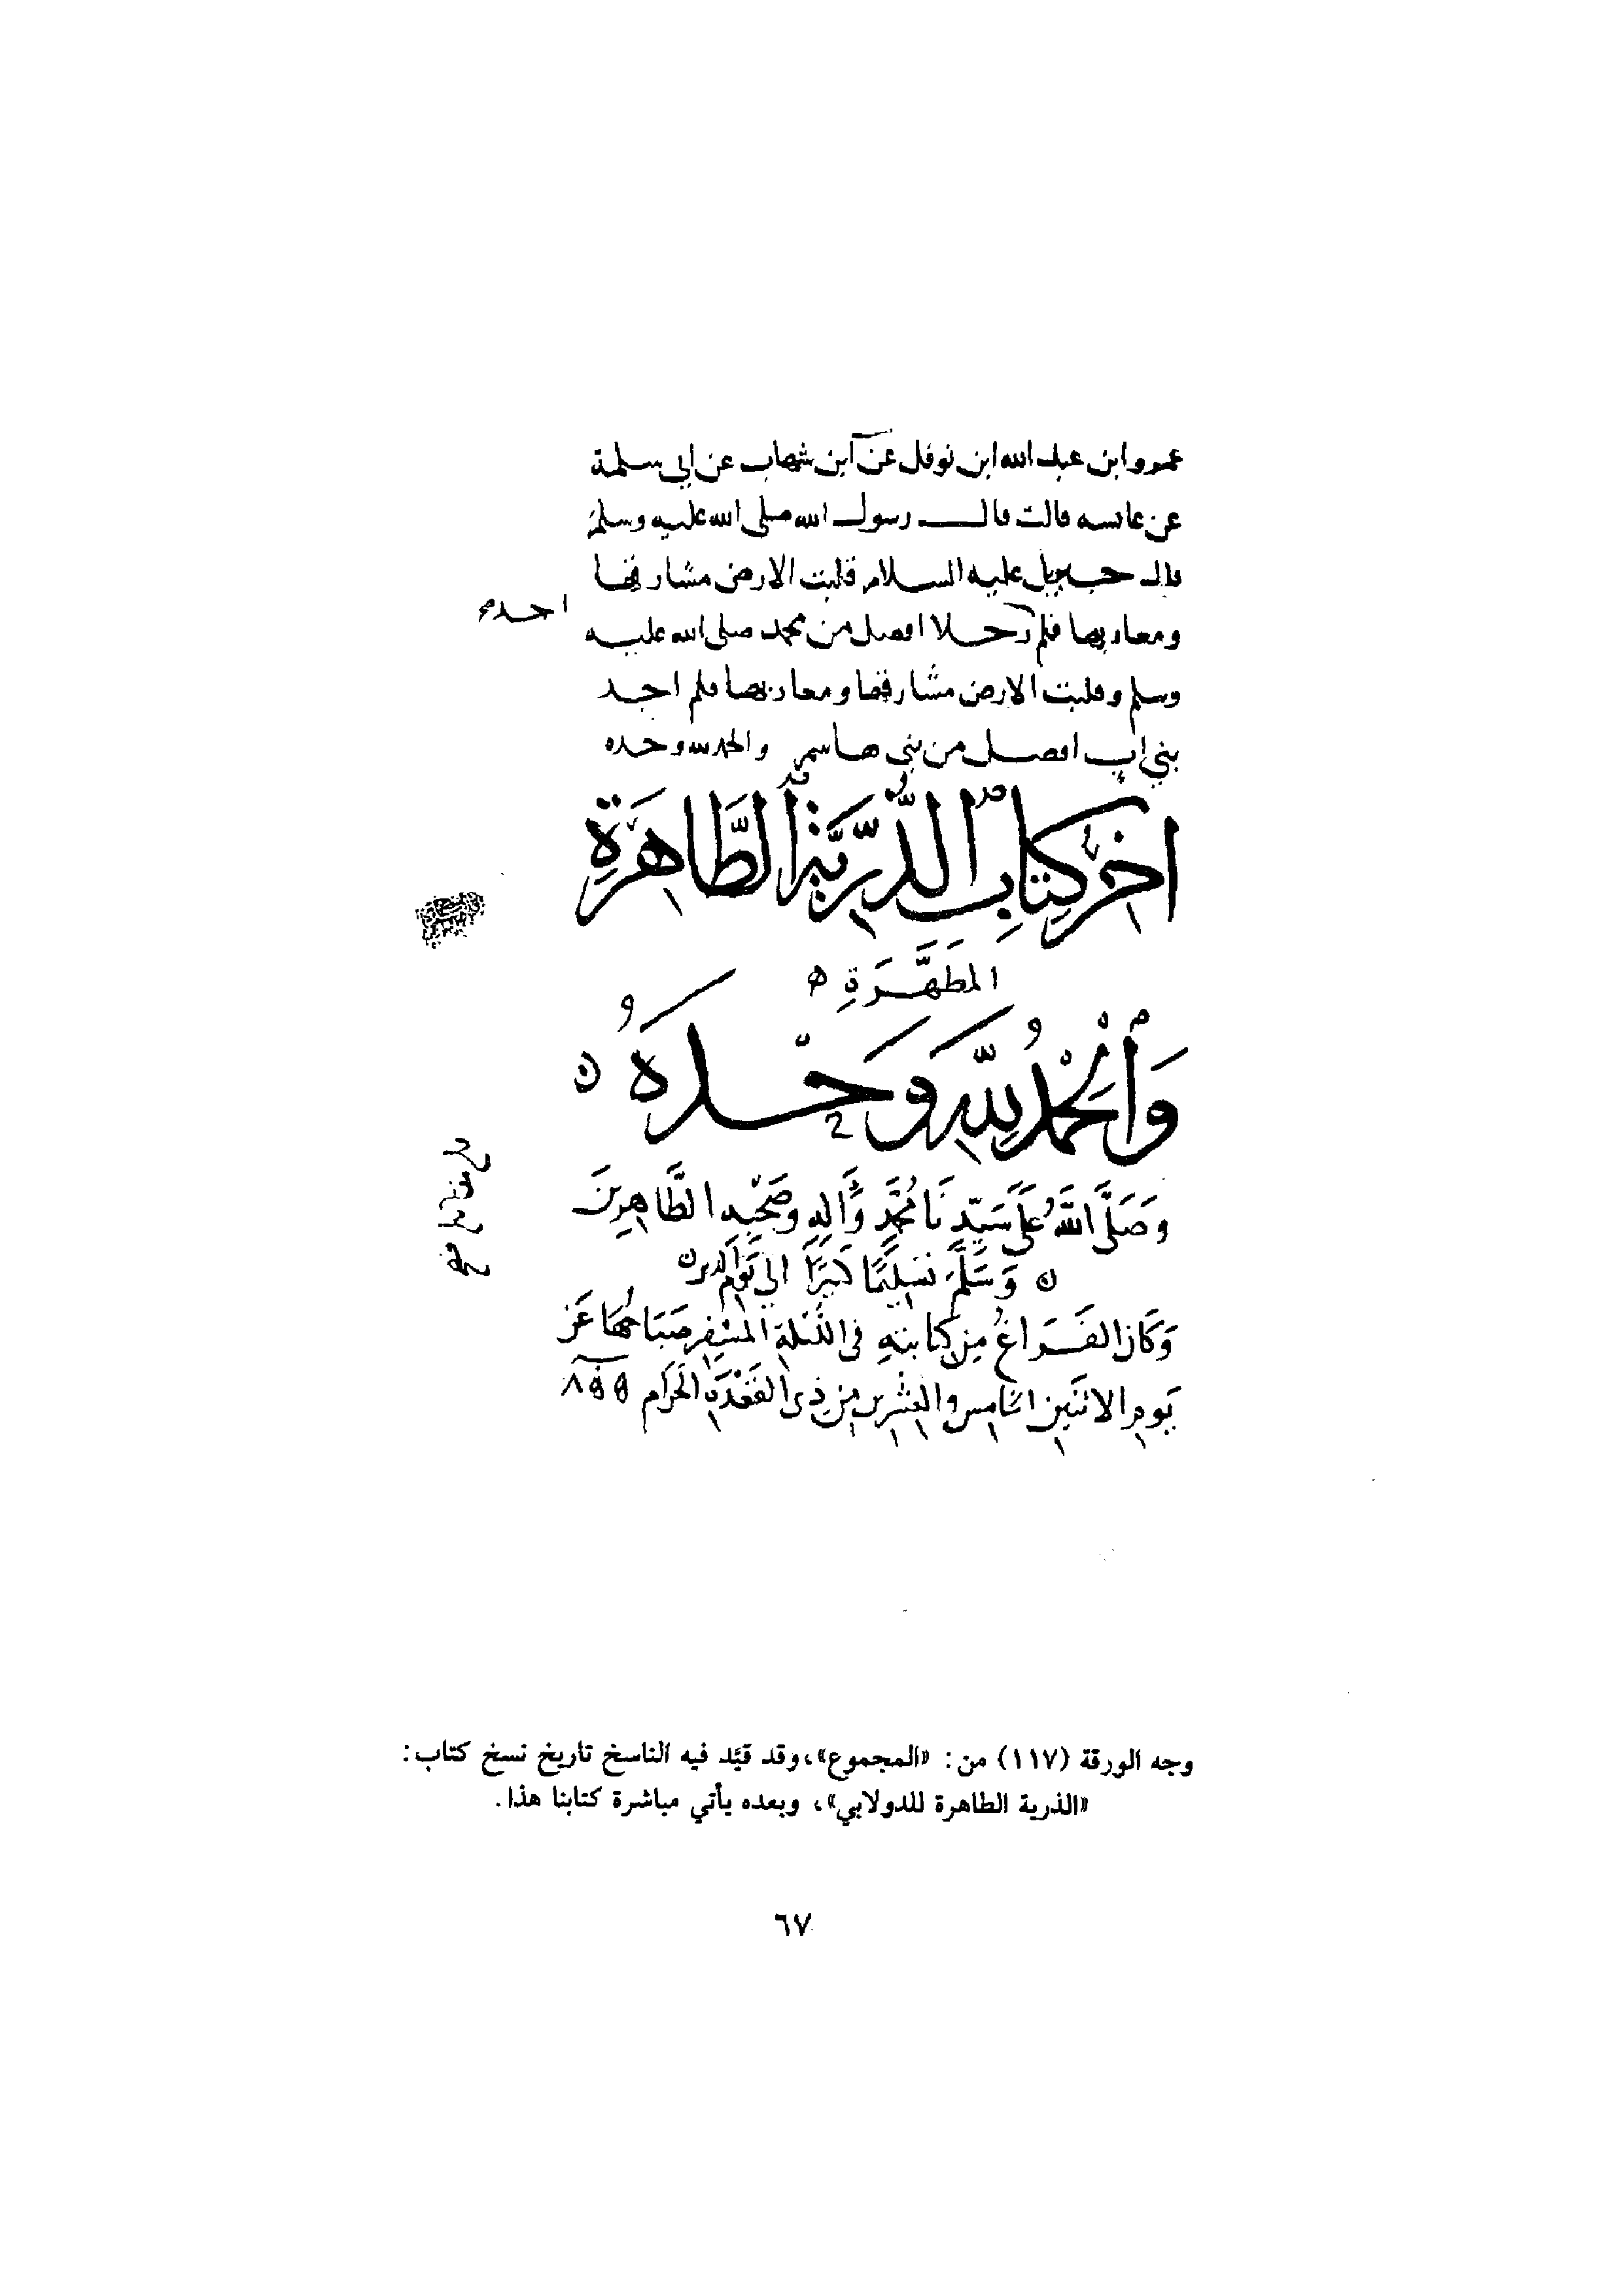 عمرو ابن عبد الله ابن نوفل عن ابن شهاب عن ابي سلمة
عن عائسه قالت قال رسول الله صلى الله عليه وسلم
قال جبريل عليه السلام قلبت الارض مشارقها
احد
ومغاربها فلم رجلا افضل من محمد صلى الله عليه
وسلم وقلبت الارض مشارقها ومغاربها فلم اجد
بني اب افضل من بني هاشم والحمد لله وحده
اٰخر كتاب الذرية الطاهرة
المطهرة
وَالحمد لله وحده
وَصَلَّى اللَّهُ عَلَى سَيِّدِنَا مُحَمَّدٍ وَآلِهِ وَصَحْبِهِ الطَّاهِرِينَ
وَسَلَّمَ تسليمًا كثيرًا الى يَوْمِ الدين
وَكَانَ الفَرَاغُ مِن كتابتهِ فى اللَّيلة المسْفِر صَبَاحُهَا عَن
يَومِ الاثنَين الخامِس والعِشْرِين مِن ذِى القَعْدَةِ الحَرَام ٨٥٥
وجه الورقة (١١٧) من: «المجموع»، وقد قيَّد فيه الناسخ تاريخ نسخ كتاب:
«الذرية الطاهرة للدولابي»، وبعده يأتي مباشرة كتابنا هذا.
٦٧